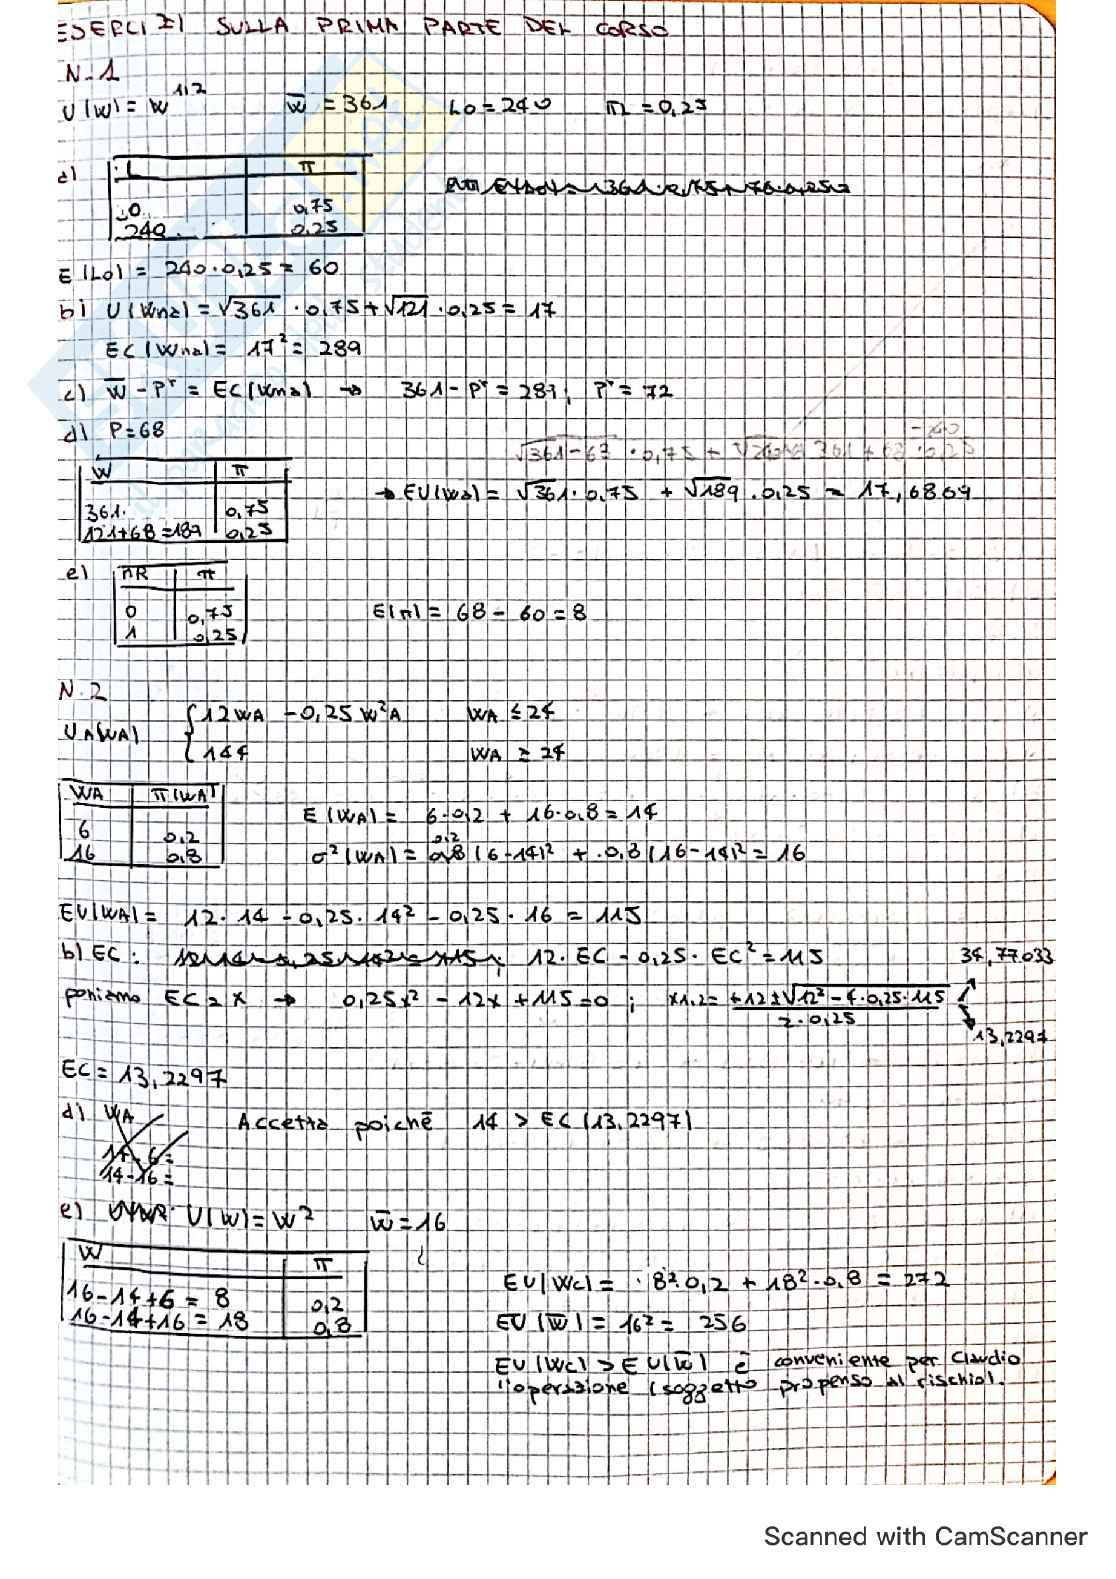 ESERCIZI SULLA PRIMA PARTE DEL CORSO
N.1
U(W) = W^1/2 W̅ = 361 L0 = 240 πL = 0,25
a) L π
0 0,75
240 0,25
E(L0) = 240·0,25 = 60
b) U(Wna) = √361 · 0,75 + √121 · 0,25 = 17
EC(Wna) = 17² = 289
c) W̅ - Pʳ = EC(Wna) → 361 - Pʳ = 289; Pʳ = 72
d) P = 68
W π
361 0,75
121+68 = 189 0,25
→ EU(Wa) = √361 · 0,75 + √189 · 0,25 = 17,6869
e) nR π
0 0,75
1 0,25
E(π) = 68 - 60 = 8
N.2
UA(WA) { 12WA - 0,25W²A WA ≤ 24
144 WA ≥ 24
WA π(WA)
6 0,2
16 0,8
E(WA) = 6·0,2 + 16·0,8 = 14
σ²(WA) = 0,2 (6-14)² + 0,8(16-14)² = 16
EU(WA) = 12·14 - 0,25·14² - 0,25·16 = 115
b) EC: 12·EC - 0,25·EC² = 115
poniamo EC = x → 0,25x² - 12x + 115 = 0; x1,2 = +12 ± √12² - 4·0,25·115 / 2·0,25
34,77033
13,2297
EC = 13,2297
d) WA
14-6=
14-16=
Accetta poichè 14 > EC (13,2297)
e) U(W) = W² W̅ = 16
W π
16-14+6 = 8 0,2
16-14+16 = 18 0,8
EU(Wc) = 8²·0,2 + 18²·0,8 = 272
EU(W̅) = 16² = 256
EU(Wc) > EU(W̅) è conveniente per Claudio
l'operazione (soggetto propenso al rischio).
Scanned with CamScanner